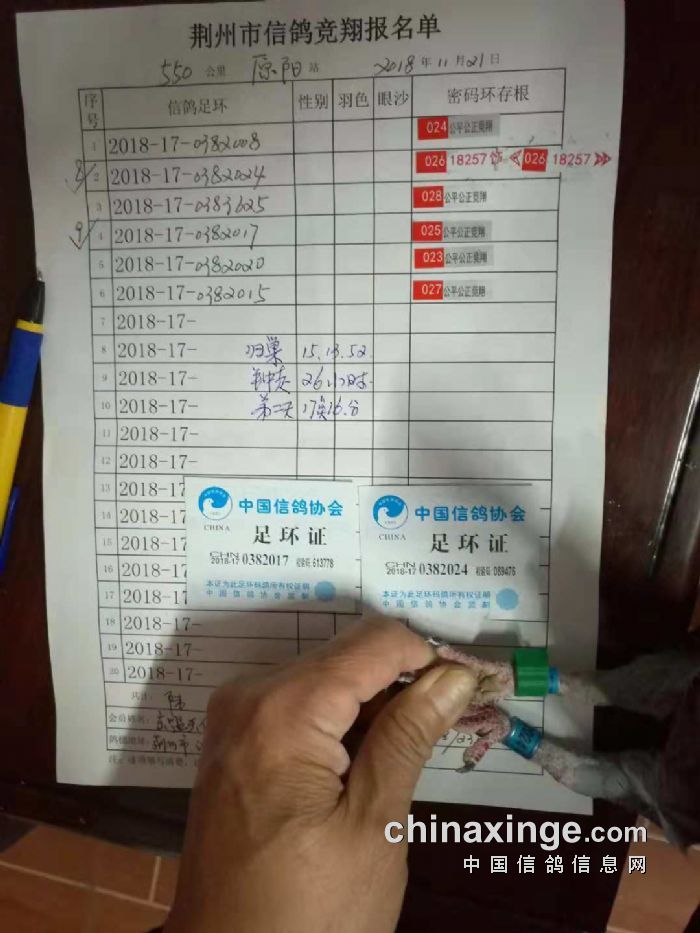 荆州市信鸽竞翔报名单
550 公里 原阳 站 2018 年 11 月 21 日
序号 信鸽足环 性别 羽色 眼沙 密码环存根
1 2018-17-0382008 024 公平公正竞翔
2 2018-17-0382024 026 18257 026 18257
3 2018-17-0383625 028 公平公正竞翔
4 2018-17-0382017 025 公平公正竞翔
5 2018-17-0382020 023 公平公正竞翔
6 2018-17-0382015 027 公平公正竞翔
7 2018-17-
8 2018-17- 归巢 15.13.52
9 2018-17- 26小时
10 2018-17- 第二天 17点16分
11 2018-17-
12 2018-17-
13 2018-17-
14 2018-17-
15 2018-17-
16 2018-17-
17 2018-17-
18 2018-17-
19 2018-17-
20 2018-17-
中国信鸽协会
CHINA 足环证
CHN 2018-17 0382017 校验码 613778
本证为此足环码鸽所有权证明
中国信鸽协会监制
中国信鸽协会
CHINA 足环证
CHN 2018-17 0382024 校验码 089475
本证为此足环码鸽所有权证明
中国信鸽协会监制
共计: 陆
会员姓名:
鸽棚地址: 荆州市
chinaxinge.com
中国信鸽信息网